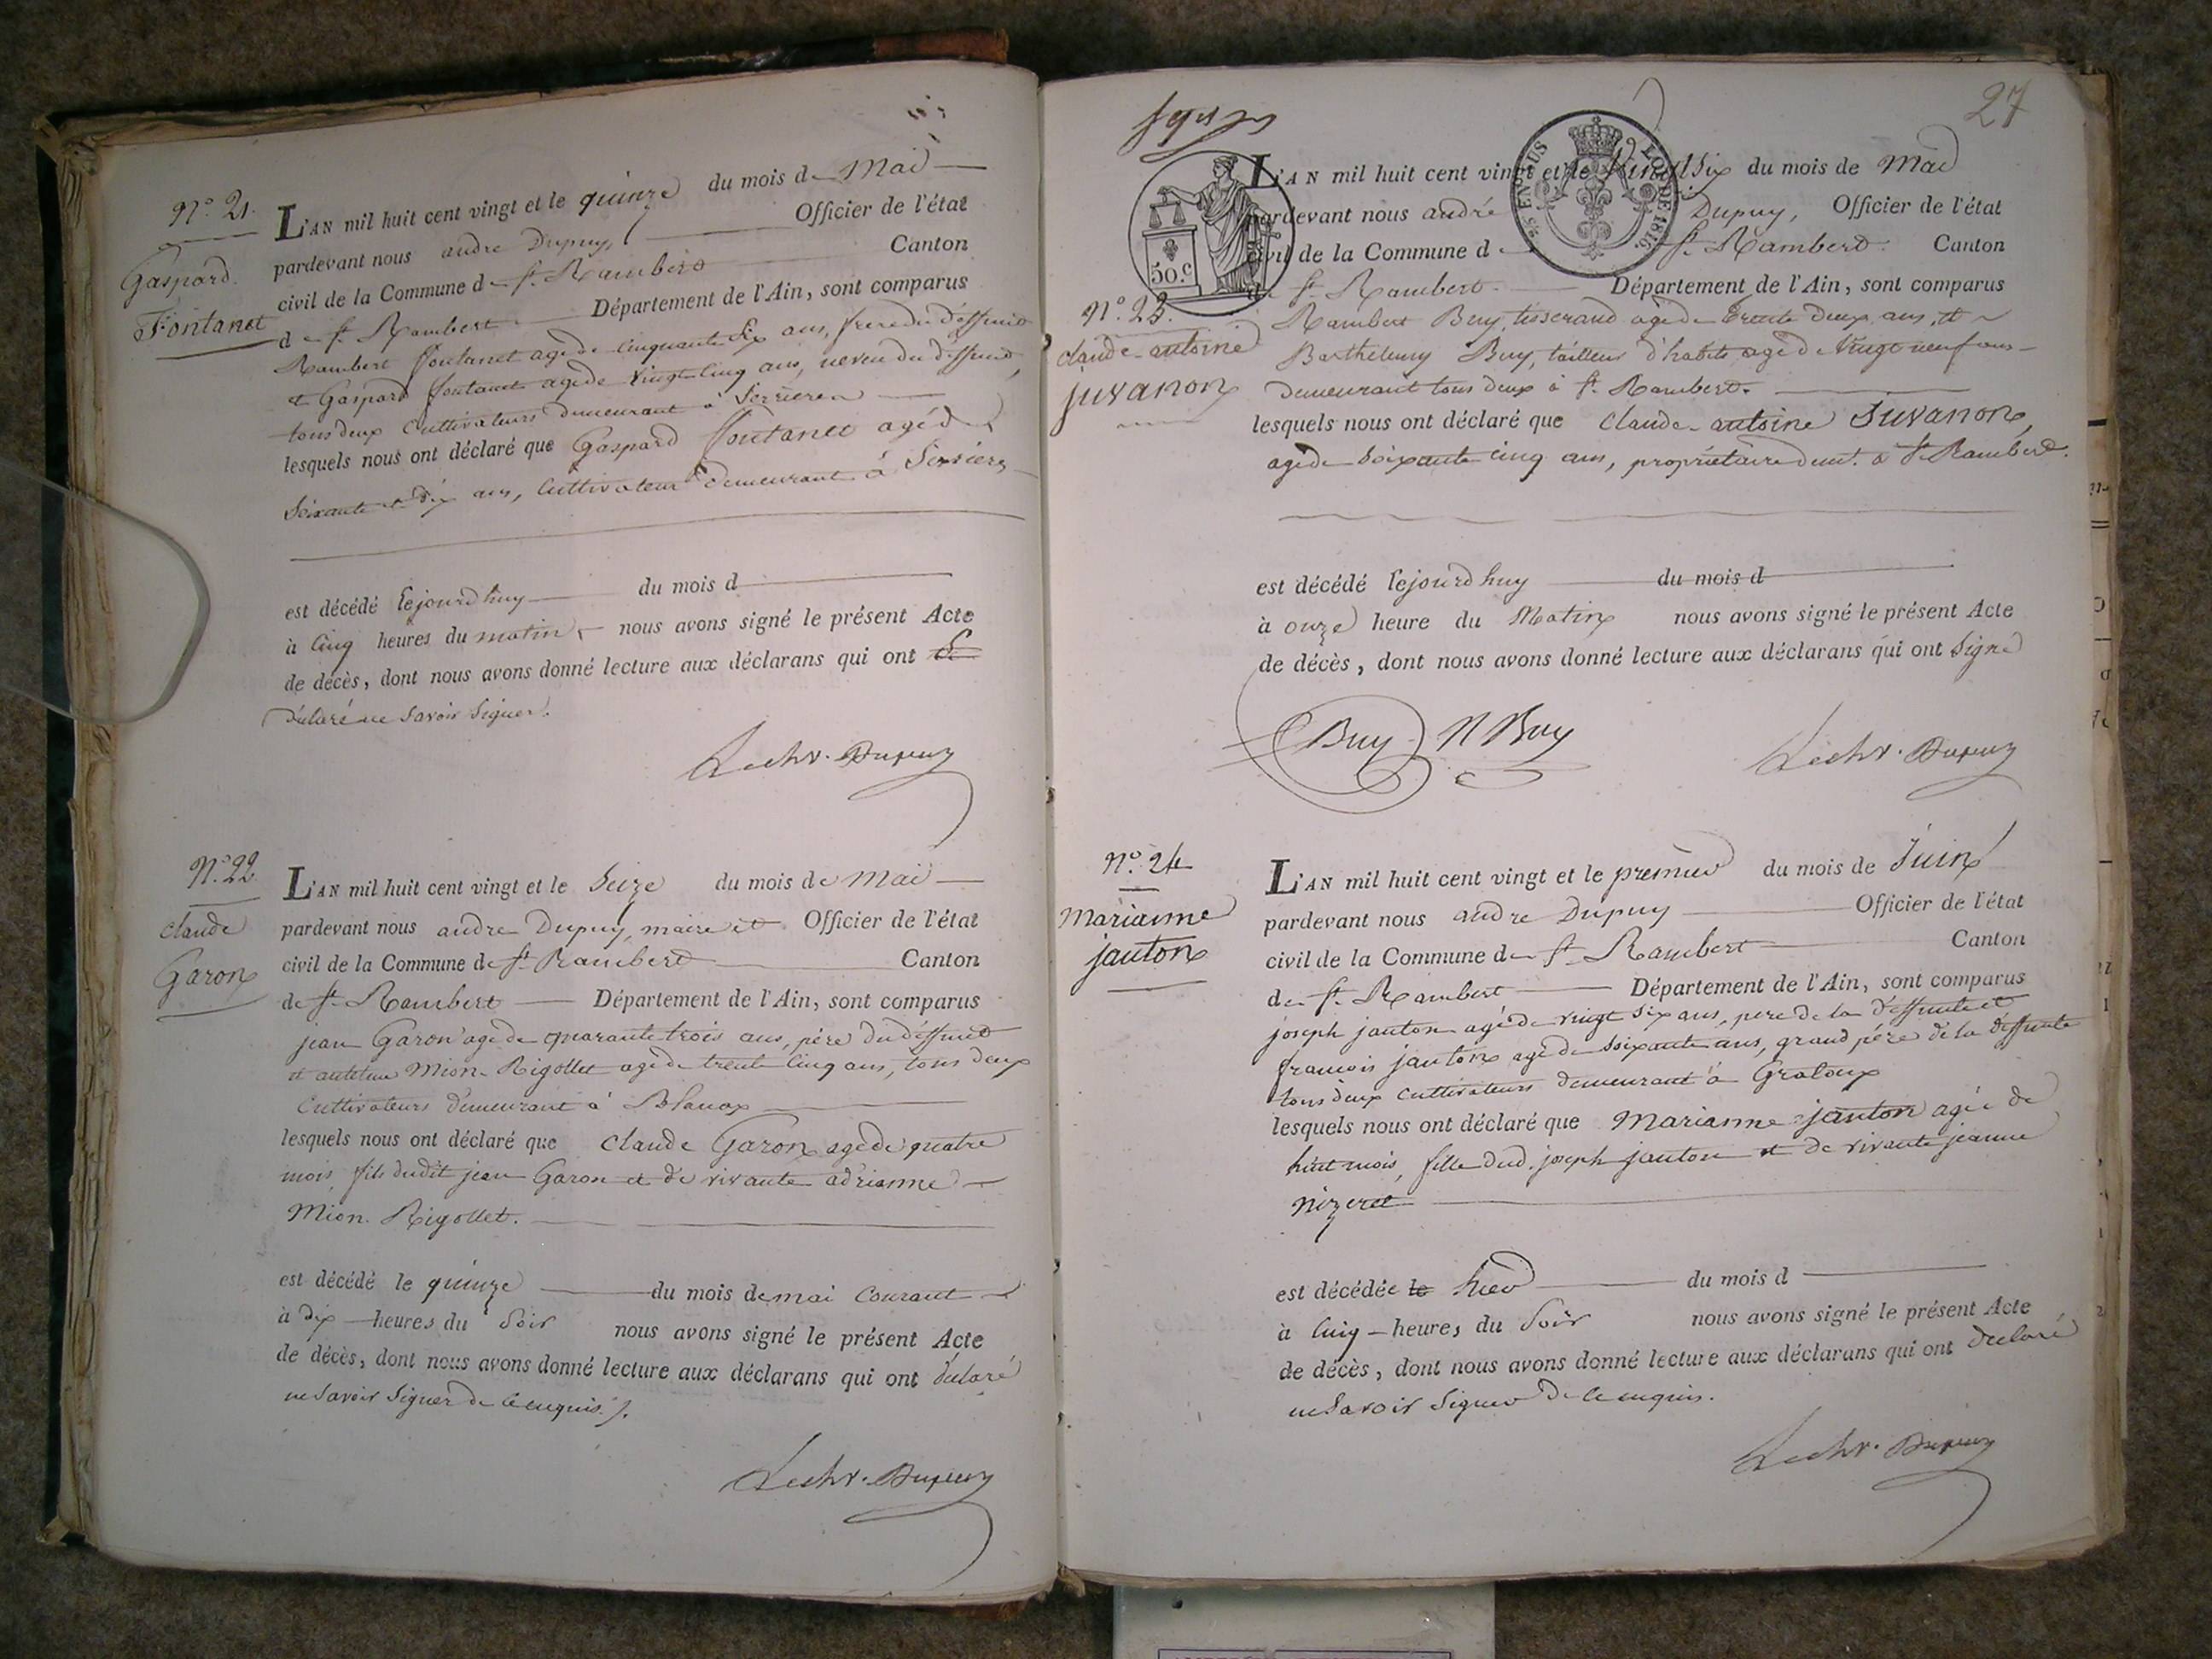 N.° 21.
Gaspard
Fontanet
L'AN mil huit cent vingt et le quinze du mois de Mai
pardevant nous andre Dupuy, Officier de l'état
civil de la Commune de St. Rambert Canton
de St. Rambert Département de l'Ain, sont comparus
Rambert fontanet agé de cinquante six ans, frere du deffunt
et Gaspard fontanet agé de vingt cinq ans, neveu du deffunt,
tous deux cultivateurs demeurant à Serrieres
lesquels nous ont déclaré que Gaspard fontanet agé de
soixante et dix ans, cultivateur demeurant à Serrieres
est décédé lejourdhuy du mois d
à cinq heures du matin nous avons signé le présent Acte
de décès, dont nous avons donné lecture aux déclarans qui ont
déclaré ne savoir signer.
Lechr. Dupuy
N.° 22
claude
Garon
L'AN mil huit cent vingt et le seize du mois de Mai
pardevant nous andre Dupuy, maire et Officier de l'état
civil de la Commune de St. Rambert Canton
de St. Rambert Département de l'Ain, sont comparus
jean Garon agé de quarante trois ans, père du deffunt
et antelme Mion-Rigollet agé de trente cinq ans, tous deux
cultivateurs demeurant à Blanax
lesquels nous ont déclaré que claude Garon agé de quatre
mois, fils dudit jean Garon et de vivante adrianne
Mion-Rigollet.
est décédé le quinze du mois de mai courant
à dix heures du soir nous avons signé le présent Acte
de décès, dont nous avons donné lecture aux déclarans qui ont déclaré
ne savoir signer de ce enquis.
Lechr. Dupuy
27
50.c
S EN SUS
LOI DE 1816.
N.° 23.
claude-antoine
juvanon
L'AN mil huit cent vingt et le Vingt Six du mois de Mai
pardevant nous andré Dupuy, Officier de l'état
civil de la Commune de St. Rambert Canton
de St. Rambert Département de l'Ain, sont comparus
Rambert Buy, tisserand agé de trente deux ans, et
Barthelemy Buy, tailleur d'habits agé de vingt neuf ans
demeurant tous deux à St. Rambert.
lesquels nous ont déclaré que claude-antoine Juvanon,
agé de soixante cinq ans, propriétaire demt. à St. Rambert.
est décédé lejourdhuy du mois d
à onze heure du Matin nous avons signé le présent Acte
de décès, dont nous avons donné lecture aux déclarans qui ont signé
Buy R Buy Lechr. Dupuy
N.° 24
Marianne
janton
L'AN mil huit cent vingt et le premier du mois de Juin
pardevant nous andre Dupuy Officier de l'état
civil de la Commune de St. Rambert Canton
de St. Rambert Département de l'Ain, sont comparus
joseph janton agé de vingt six ans, pere de la deffunte et
francois janton agé de soixante ans, grand pére de la deffunte
tous deux cultivateurs demeurant à Graloux
lesquels nous ont déclaré que Marianne janton agée de
huit mois, fille dud. joseph janton et de vivante jeanne
nizeret
est décédée le hier du mois d
à cinq heures du soir nous avons signé le présent Acte
de décès, dont nous avons donné lecture aux déclarans qui ont declaré
ne savoir signer de ce enquis.
Lechr. Dupuy